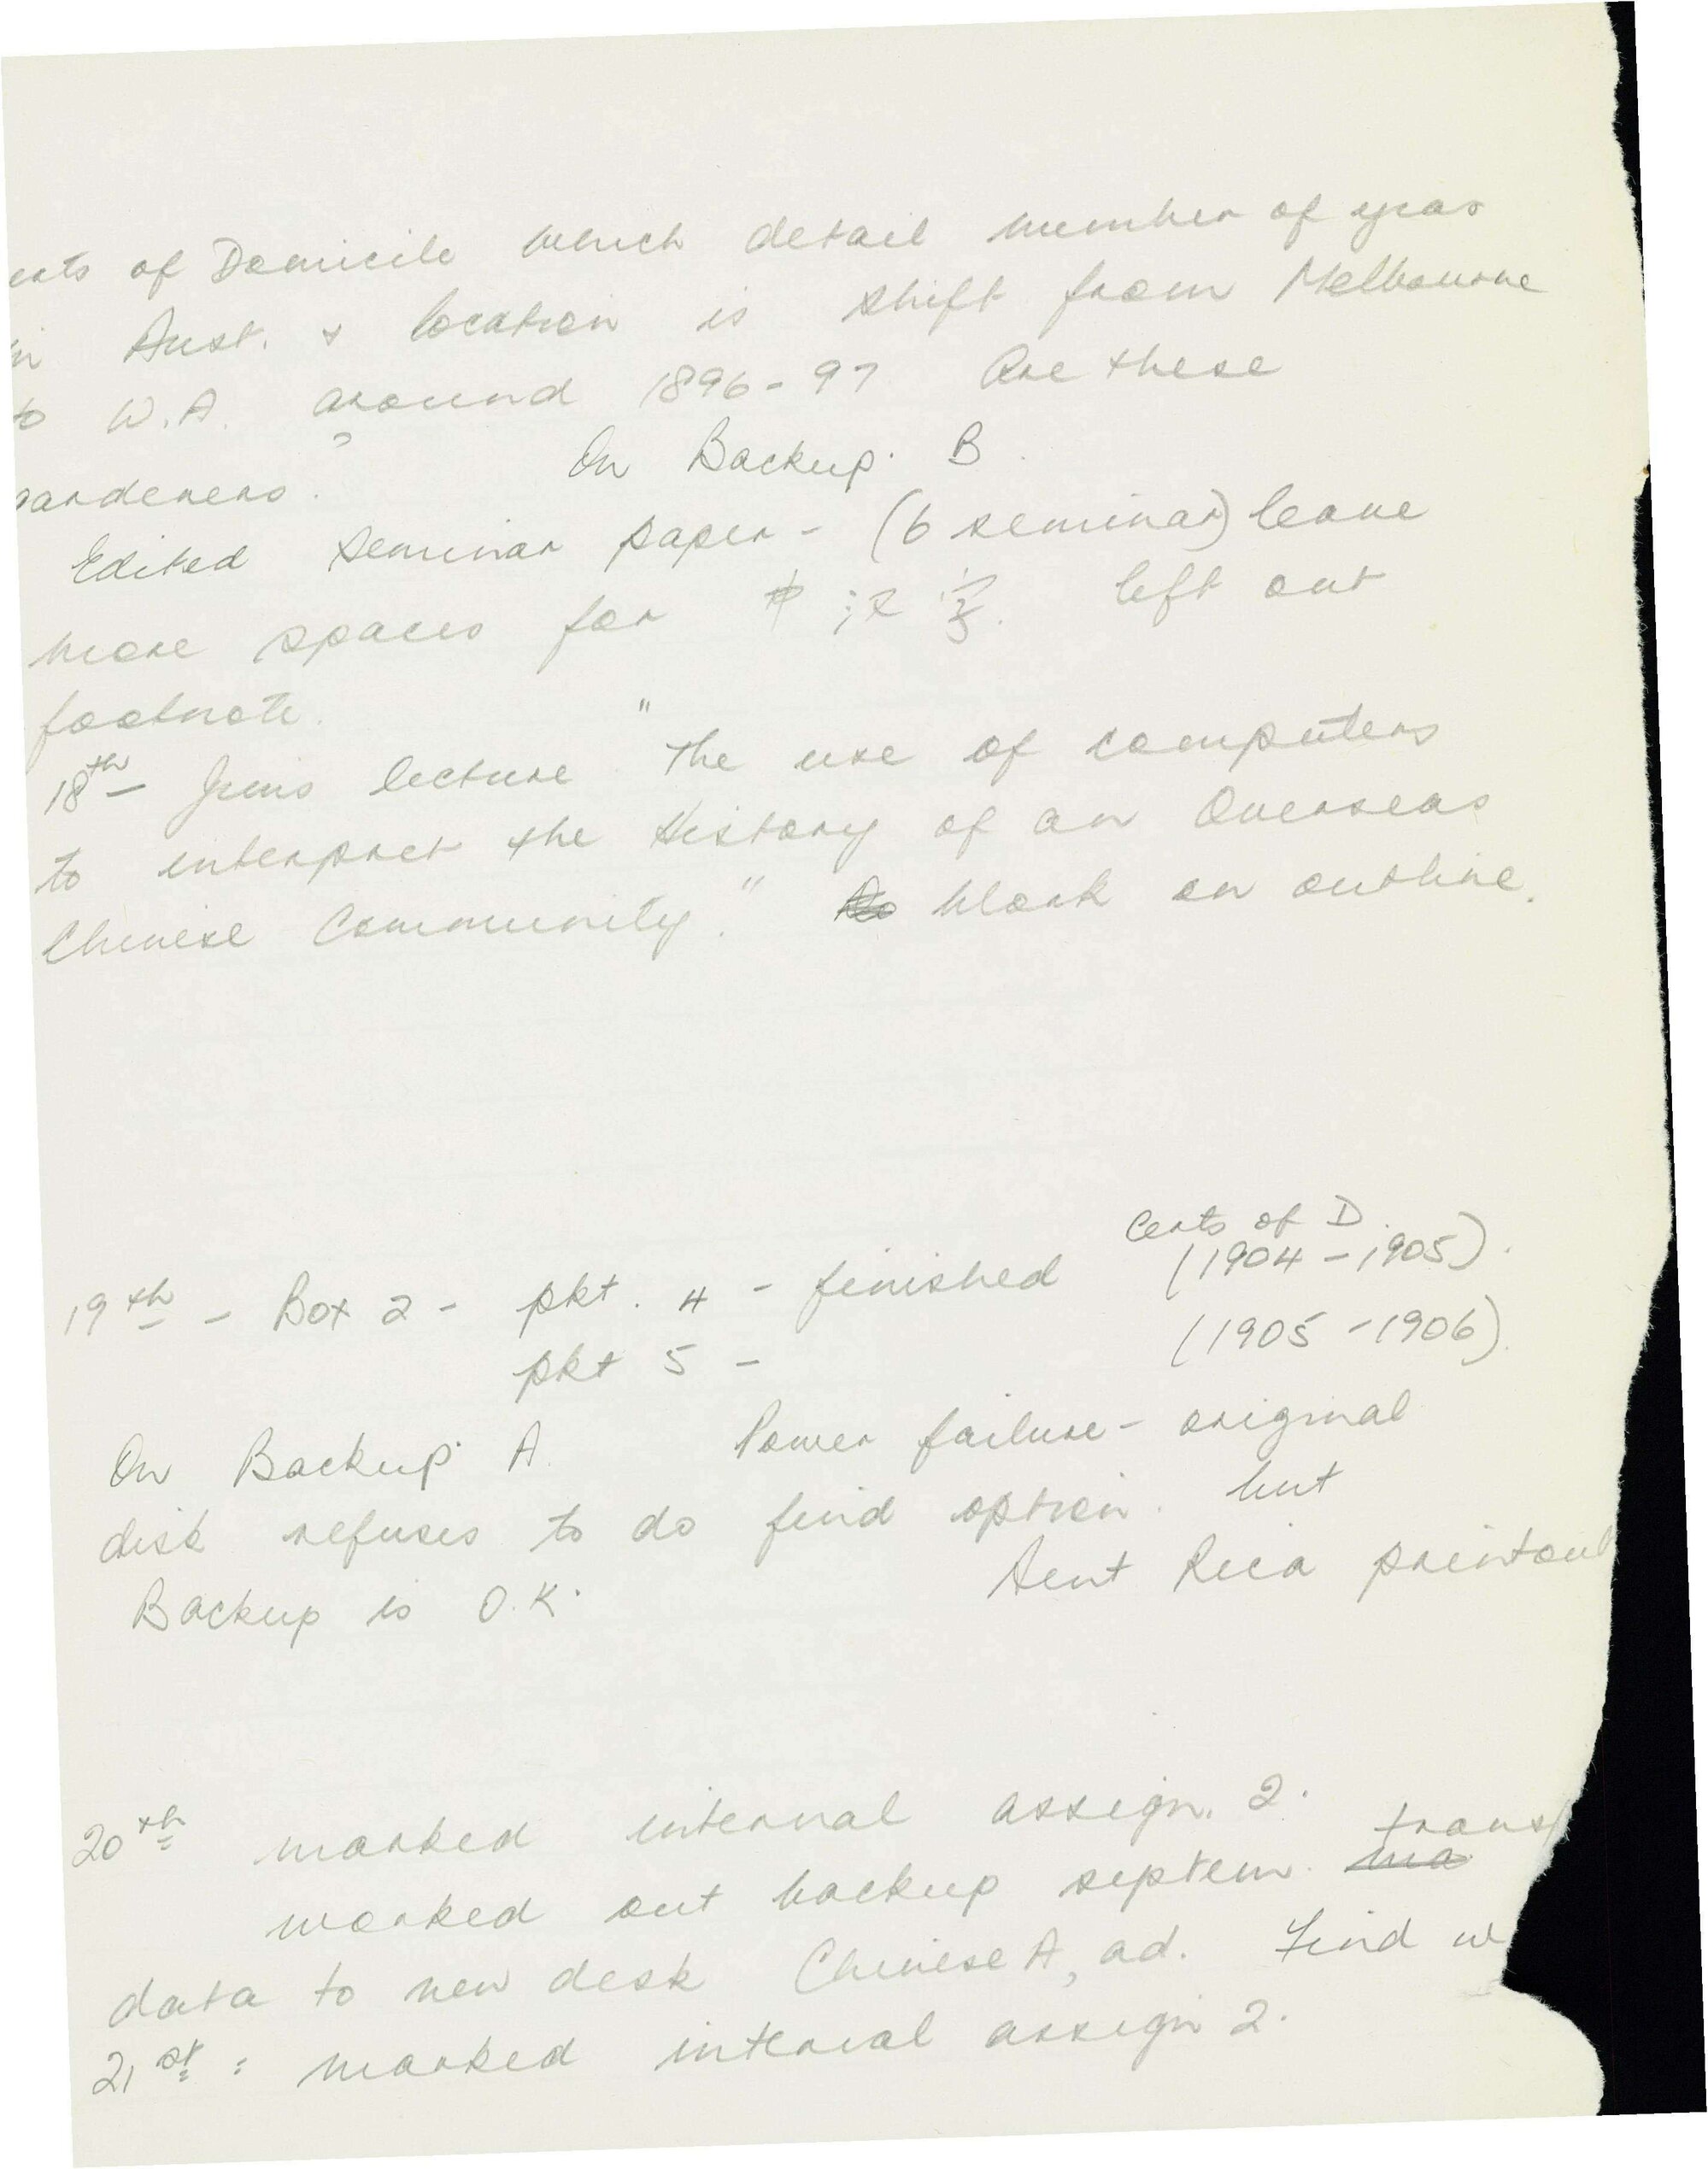 erts of Domicile which detail number of years
in Aust. & location is shift from Melbourne
to W.A. around 1896-97 Are these
gardeners. ? On Backup B.
Edited seminar paper - (6 seminar) leave
more spaces for left out
footnote.
18th Jims lecture "The use of computers
to interpret the History of an Overseas
Chinese Community." Work on outline.
Certs of D.
19th - Box 2 - pkt. 4 - finished (1904-1905).
pkt 5 - (1905-1906).
On Backup A. Power failure - original
disk refuses to do find option. but
Backup is O.K. Sent Rica printout
20th marked internal assign. 2.
worked out backup septem. transf
data to new desk Chinese A, ad. Find w
21st: marked internal assign 2.